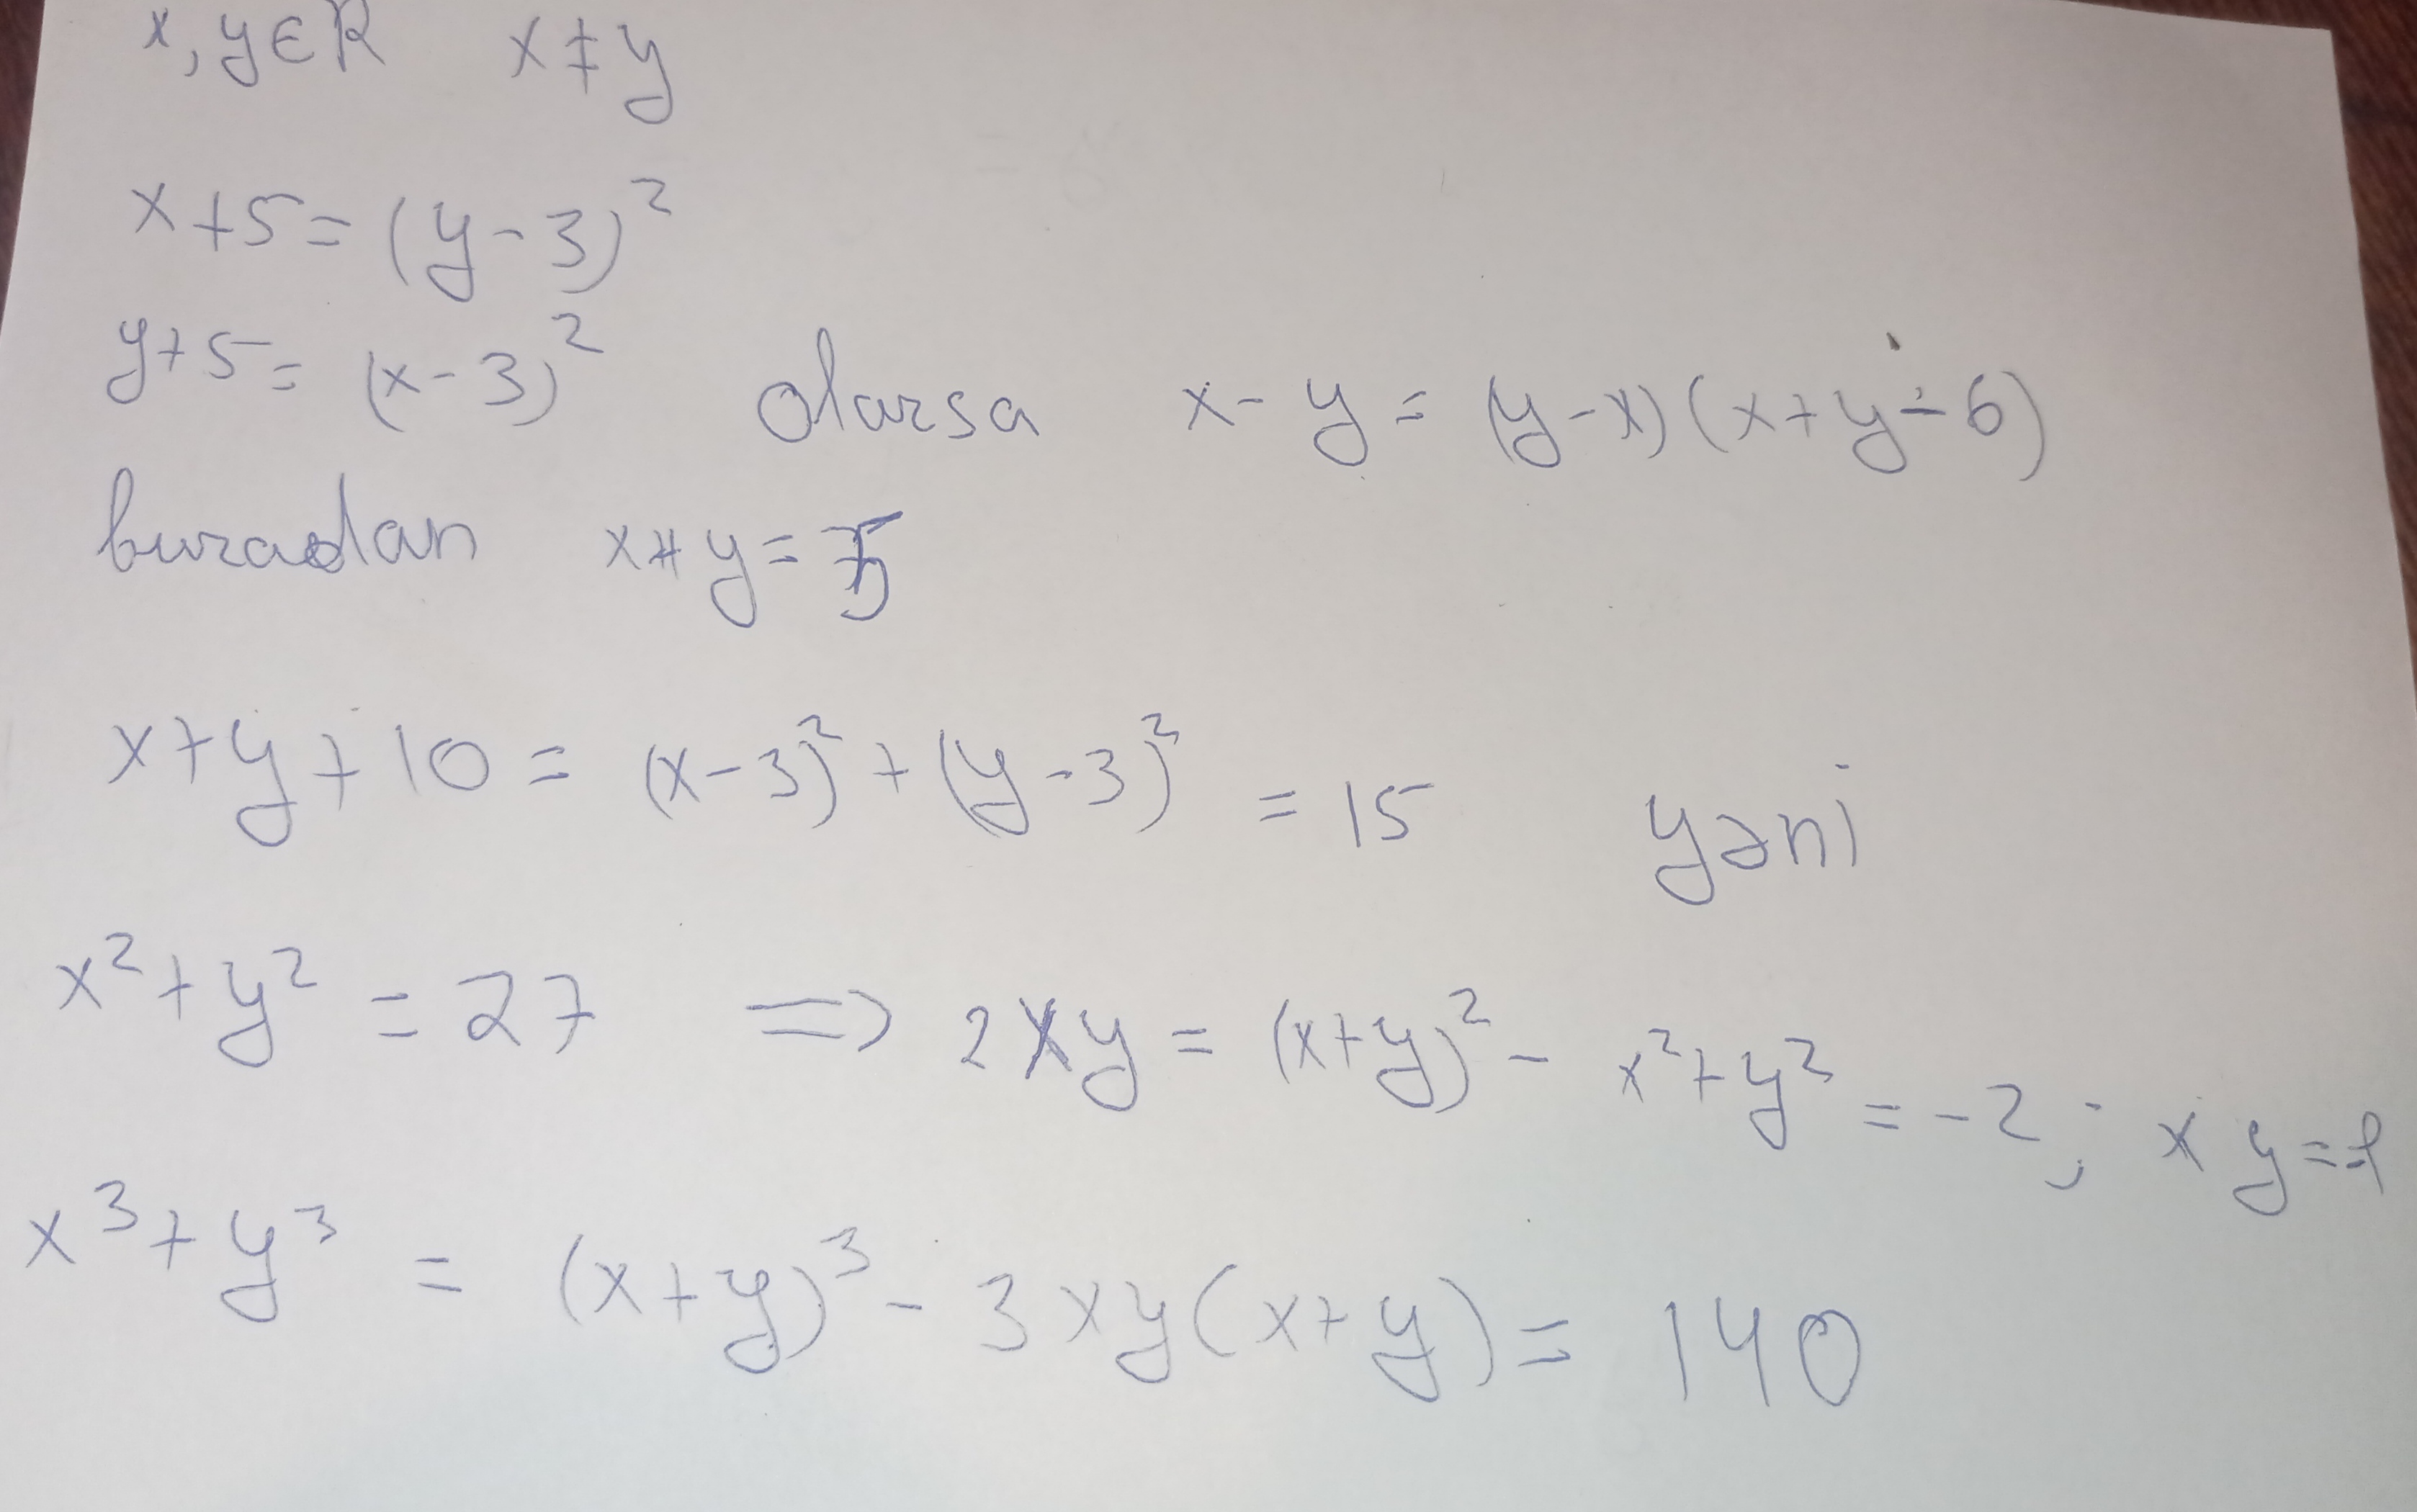 x, y ∈ R   x ≠ y
x + 5 = (y - 3)²
y + 5 = (x - 3)²   olarsa   x - y = (y - x)(x + y - 6)
buradan   x + y = 5
x + y + 10 = (x - 3)² + (y - 3)² = 15   yəni
x² + y² = 27   ⇒   2xy = (x + y)² - x² + y² = -2;   xy = -1
x³ + y³ = (x + y)³ - 3xy(x + y) = 140